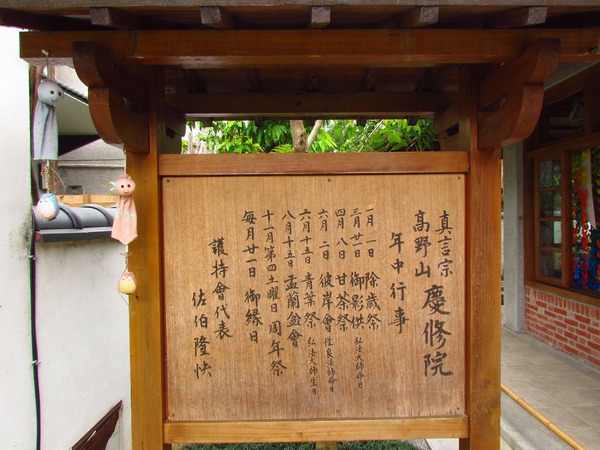 真言宗
高野山 慶修院
年中行事
一月一日 除歲祭
三月廿一日 御影供 弘法大師命日
四月八日 甘茶祭
六月二日 彼岸會
六月十五日 青葉祭 弘法大師生日
八月十五日 盂蘭盆會
十一月第四土曜日 周年祭
每月廿一日 御緣日
護持會代表
佐伯隆快